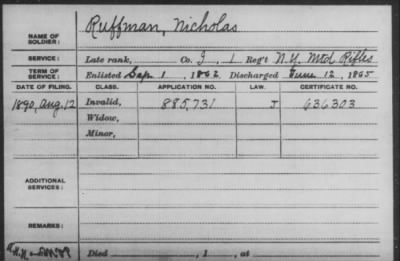 NAME OF SOLDIER: Ruffman, Nicholas
SERVICE: Late rank, Co. I, 1 Reg't N.Y. Mtd Rifles
TERM OF SERVICE: Enlisted Sep 1, 1862 Discharged June 12, 1865
DATE OF FILING. CLASS. APPLICATION NO. LAW. CERTIFICATE NO.
1890, Aug. 12 Invalid, 885,731 J 636303
Widow,
Minor,
ADDITIONAL SERVICES:
REMARKS:
Died , 1 , at